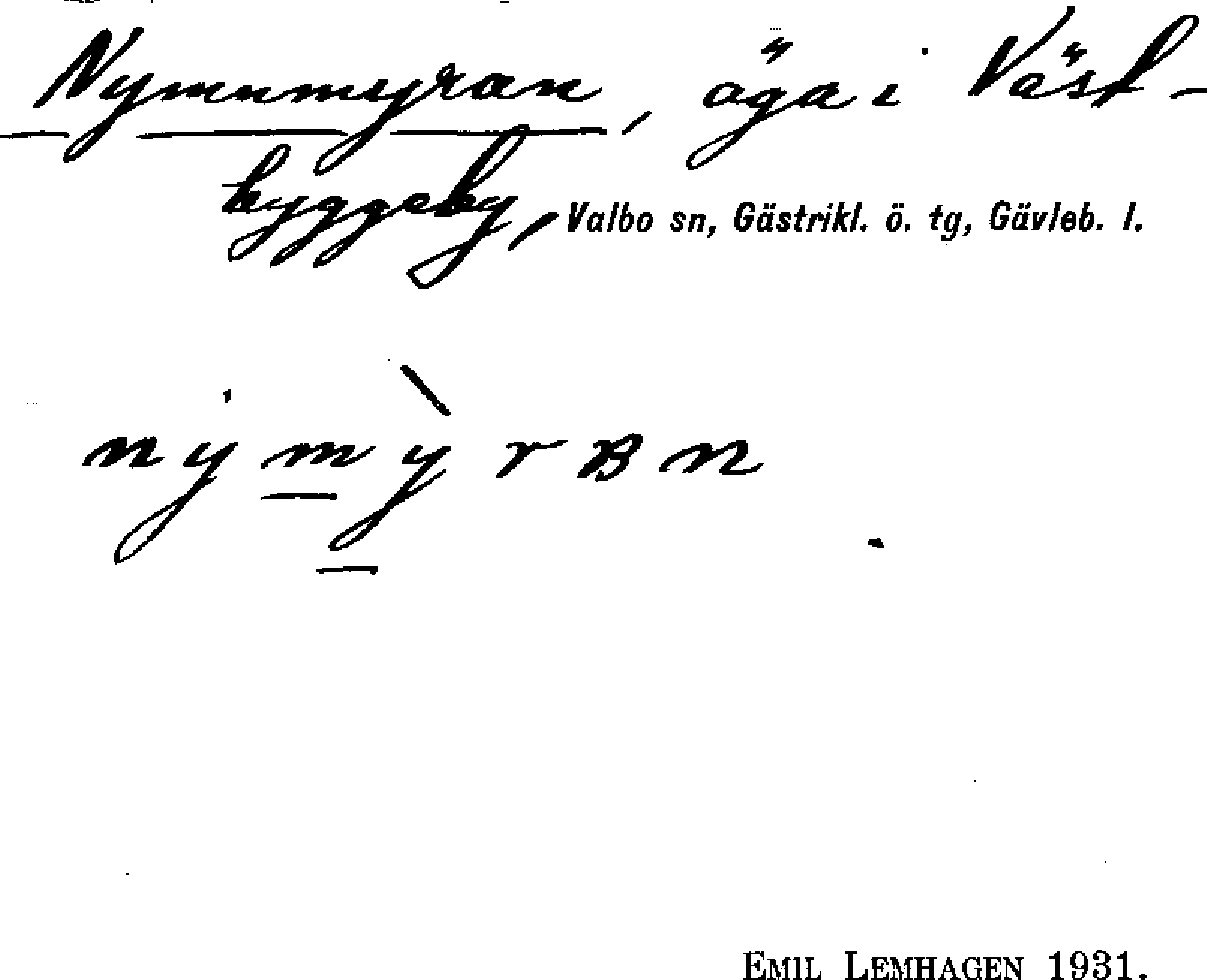 , äga i Väst-
byggeby, Valbo sn, Gästrikl. ö. tg, Gävleb. l.
EMIL LEMHAGEN 1931.